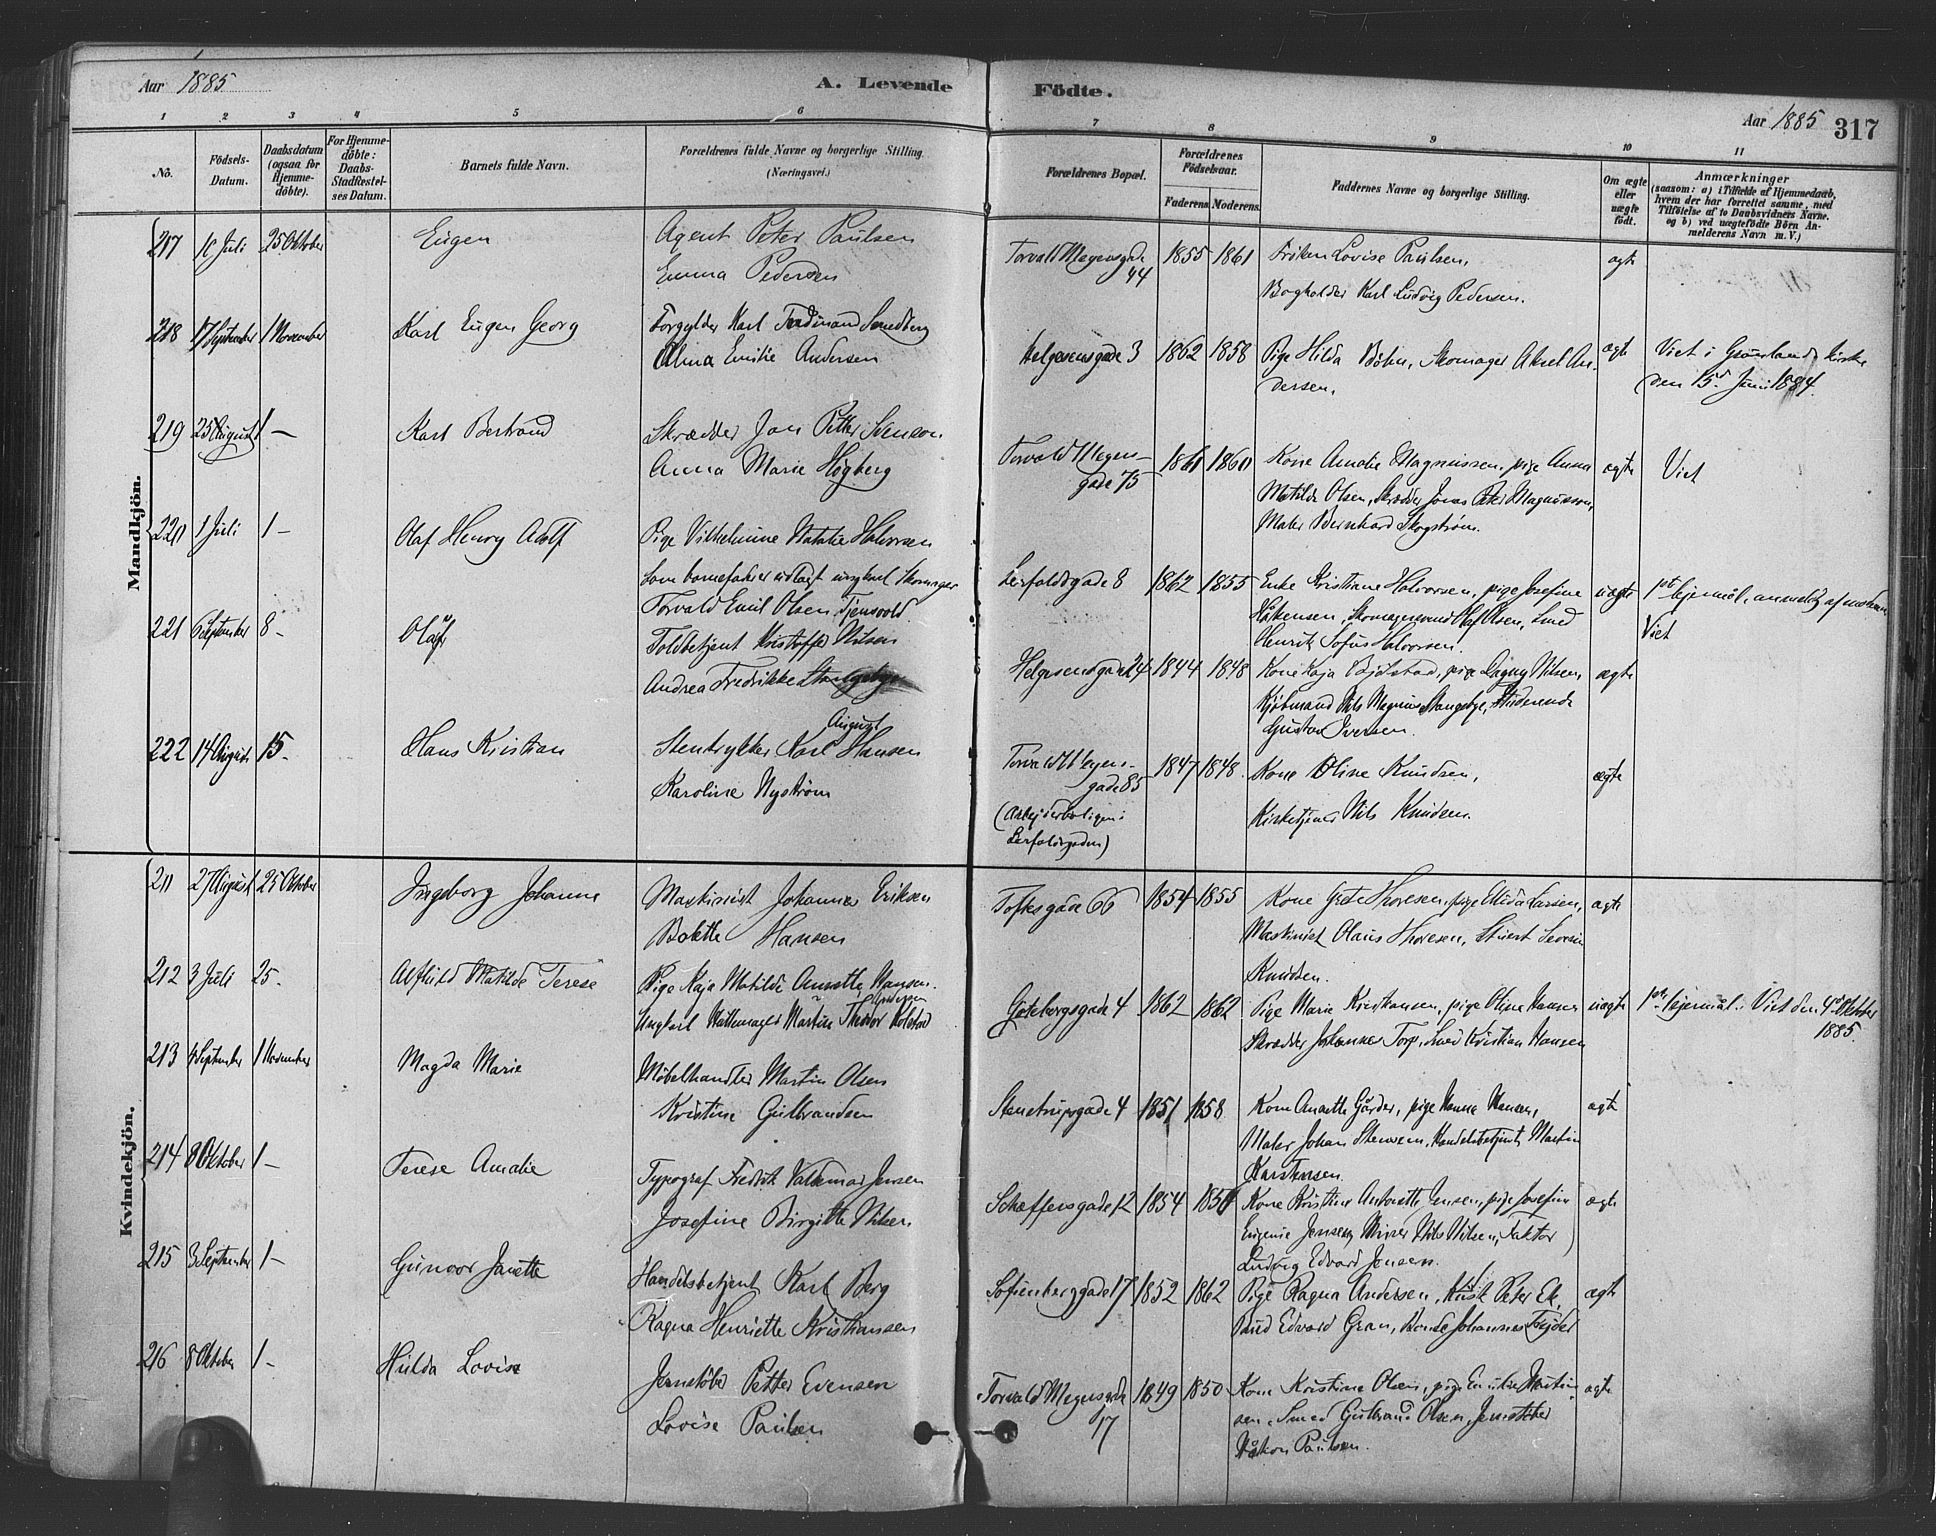 Aar 1885
A. Levende
1 2 3 4 5 6
No.
Födsels-Datum.
Daabsdatum (ogsaa for Hjemmedöbte).
For Hjemmedöbte: Daabs-Stadfestelses Datum.
Barnets fulde Navn.
Forældrenes fulde Navne og borgerlige Stilling. (Næringsvei.)
Mandkjön.
217 10 Juli 25 Oktober Eugen Agent Peter Paulsen
Emma Pedersen
218 17 September 1 November Karl Eugen Georg Forgylder Karl Ferdinand Smedberg
Alma Emilie Andersen
219 25 August 1 — Karl Bertrand Skrædder Jon Petter Svenson
Anna Marie Högberg
220 1 Juli 1 — Olaf Henry Adolf Pige Vilhelmine Natalie Halvorsen
Som barnefader udlagt ungkarl Skomager
Torvald Emil Olsen Tjensvold
221 6 September 8 — Oluf Toldbetjent Kristoffer Nilsen
Andrea Fredrikke Stangebye
222 14 August 15. Olaus Kristian Stentrykker Karl August Hansen
Karoline Nyström
Kvindekjön.
211 27 August 25 Oktober Ingeborg Johanne Maskinist Johannes Eriksen
Bolette Hansen
212 3 Juli 25. Alfhild Matilde Terese Pige Kaja Matilde Annette Hansen.
Ungkarl Hattemager Martin Theodor Andersen Kolstad
213 6 September 1 November Magda Marie Möbelhandler Martin Olsen
Kristine Gulbrandsen
214 8 Oktober 1 — Terese Amalie Typograf Fredrik Valdemar Jensen
Josefine Birgitte Nilsen
215 3 September 1 — Gunvor Janette Handelsbetjent Karl Berg
Ragna Henriette Kristiansen
216 8 Oktober 1 — Hilda Lovise Jernstöber Petter Evensen
Lovise Paulsen
Födte.
Aar 1885 317
7 8 9 10 11
Forældrenes Bopæl.
Forældrenes Födselsaar.
Faderens Moderens
Faddernes Navne og borgerlige Stilling.
Om ægte eller uægte födt.
Anmærkninger
(saasom: a) i Tilfælde af Hjemmedaab, hvem der har forrettet samme, med Tilföielse af to Daabsvidners Navne. og b) ved uægtefödte Börn Anmelderens Navn m. V.)
Torvald Meyersgade 44 1855 1861 Fröken Lovise Paulsen, ægte
Bogholder Karl Ludvig Pedersen.
Helgesensgade 3 1862 1858 Pige Hilda Böhn, Skomager Aksel An- ægte Viet i Grönlands kirke
dersen, den 15d Juni 1884.
Torvald Meyers-gade 75 1861 1860 Kone Amalie Magnussen, pige Anna ægte Viet
Matilde Olsen, Skrædder Jonas Peter Magnusson,
Maler Bernhard Skogström.
Leirfaldsgade 8 1862 1855 Enke Kristiane Halvorsen, pige Josefine uægte 1ste leiermål, anmeldt af moderen
Håkensen, Skomagersvend Olaf Olsen, Smed Viet
Henrik Sofus Halvorsen.
Helgesensgade 24 1844 1848 Kone Kaja Björstad, pige Dagny Nilsen, ægte
Kjöbmand Nils Magnus Stangebye, Studerende
Gustav Iversen.
Torvald Meyers-gade 85 1847 1848. Kone Oline Knudsen, ægte
(Arbeiderboligen i Leirfaldsgaden) Kirketjener Nils Knudsen.
Toftesgade 66 1854 1855 Kone Grete Thoresen, pige Elida Larsen, ægte
Maskinist Olaus Thoresen, Stuert Severin
Knudsen.
Göteborgsgade 4 1862 1862 Pige Marie Kristiansen, pige Oline Hansen uægte 1ste leiermål. Viet den 4d Oktober
Skrædder Johannes Torp, Smed Kristian Hansen 1885.
Stenstrupsgade 4 1851 1858 Kone Annette Gårder, pige Hanna Hansen, ægte
Maler Johan Stensen, Handelsbetjent Martin
Karstensen.
Schæffersgade 12 1854 1856 Kone Kristine Antonette Jensen, pige Josefine ægte
Eugenie Jensen, Nils Nilsen, Faktor
Ludvig Edvard Jensen.
Sofienberggade 17 1852 1862 Pige Ragna Andersen, Kusk Peter Ek, ægte
Edvard Gran, Johannes
Torvald Meyersgade 17 1849 1850 Kone Kristine Olsen, pige Emilie Martin- ægte
sen, Smed Gulbrand Olsen, Jernstöber
Håkon Paulsen.